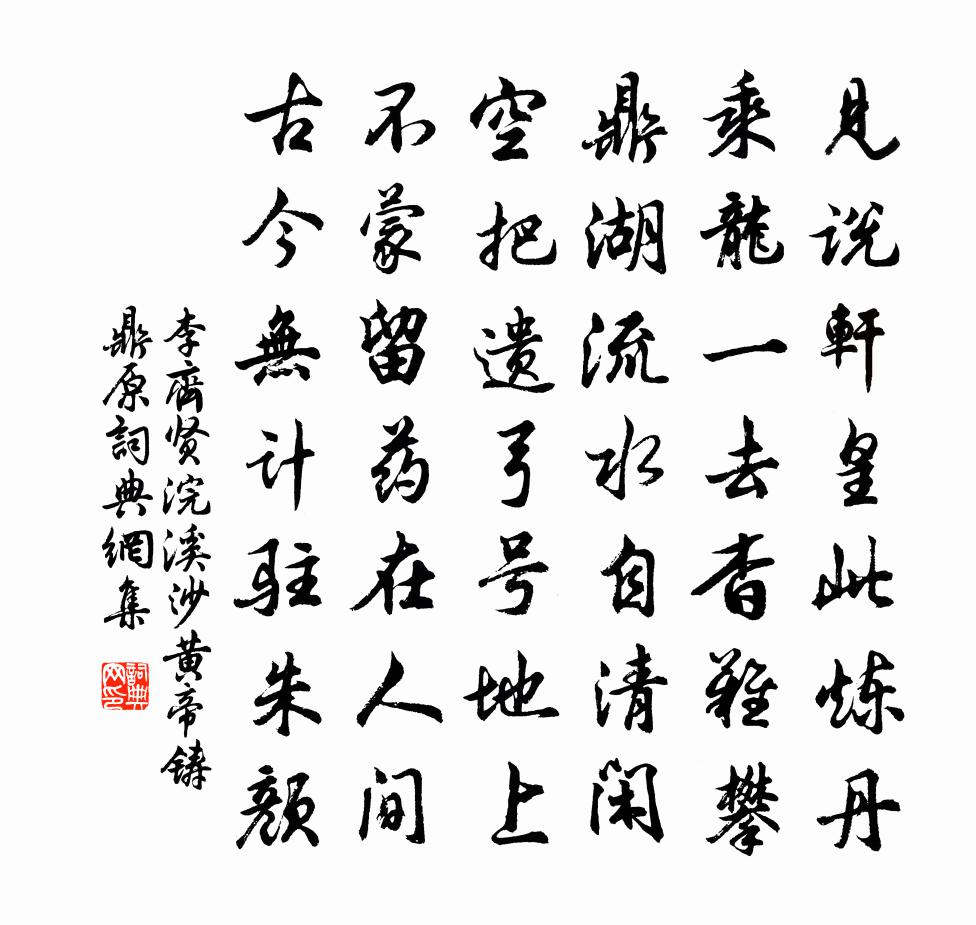 見说軒皇此炼丹
乘龍一去杳難攀
鼎湖流水自清闲
空把遗弓号地上
不蒙留药在人间
古今無计驻朱颜
李齊贤浣溪沙黄帝铸
鼎原詞典網集
詞典网印